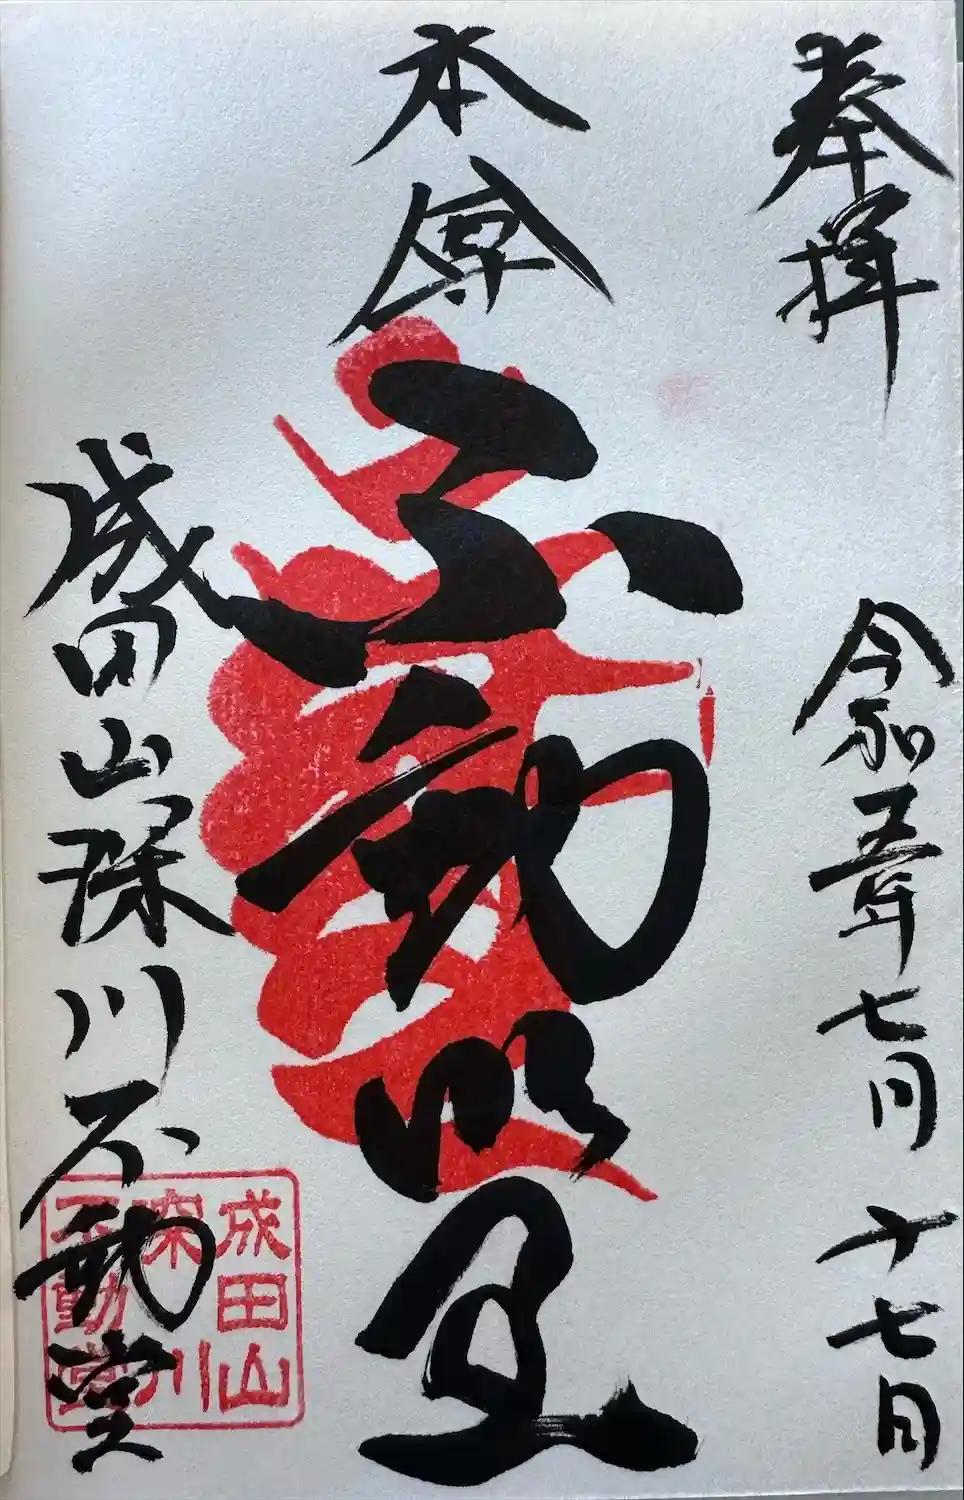 奉拝
令和五年七月十七日
本尊
不動明王
成田山深川不動堂
成田山
深川
不動堂